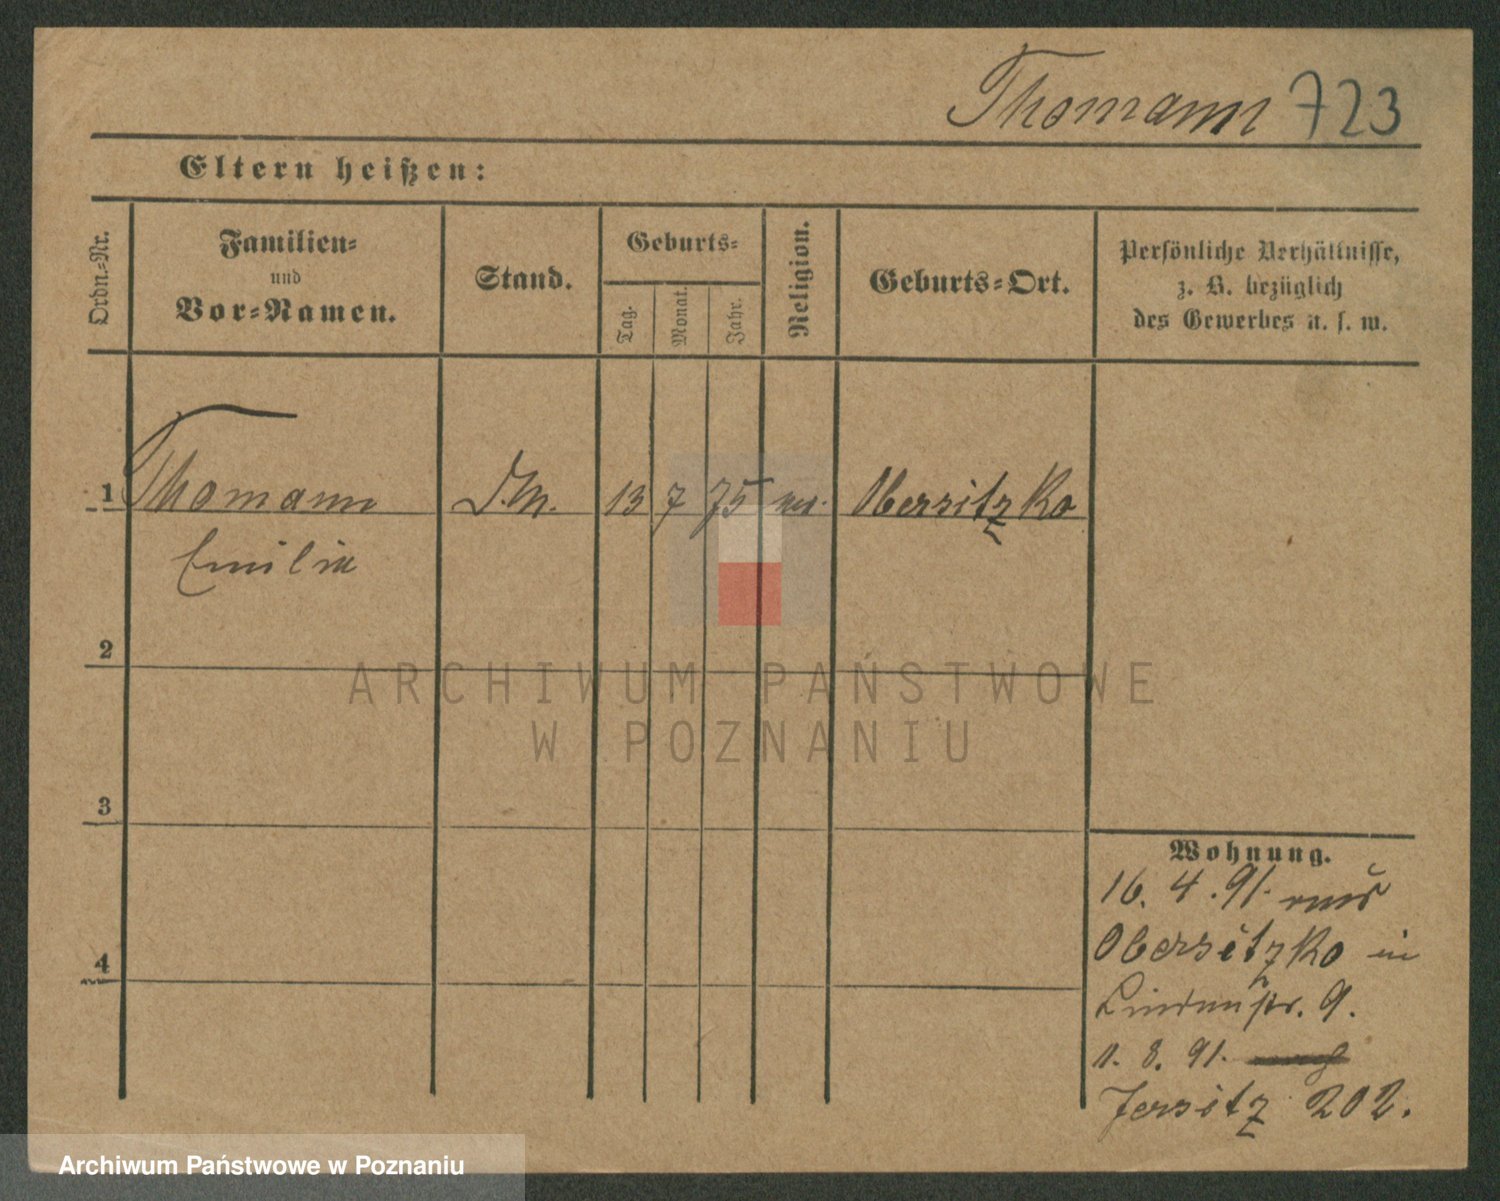 Thomann 723
Eltern heißen:
Ordn.=Nr.
Familien=
und
Vor=Namen.
Stand.
Geburts=
Tag.
Monat.
Jahr.
Religion.
Geburts=Ort.
Persönliche Verhältnisse,
z. B. bezüglich
des Gewerbes u. s. w.
1 Thomann D.M. 13 7 75 Obersitzko
Emilie
2
3
4
Wohnung.
16. 4. 91. aus
Obersitzko in
Lindenstr. 9.
1. 8. 91.
Jersitz 202.
ARCHIWUM PAŃSTWOWE
W POZNANIU
Archiwum Państwowe w Poznaniu